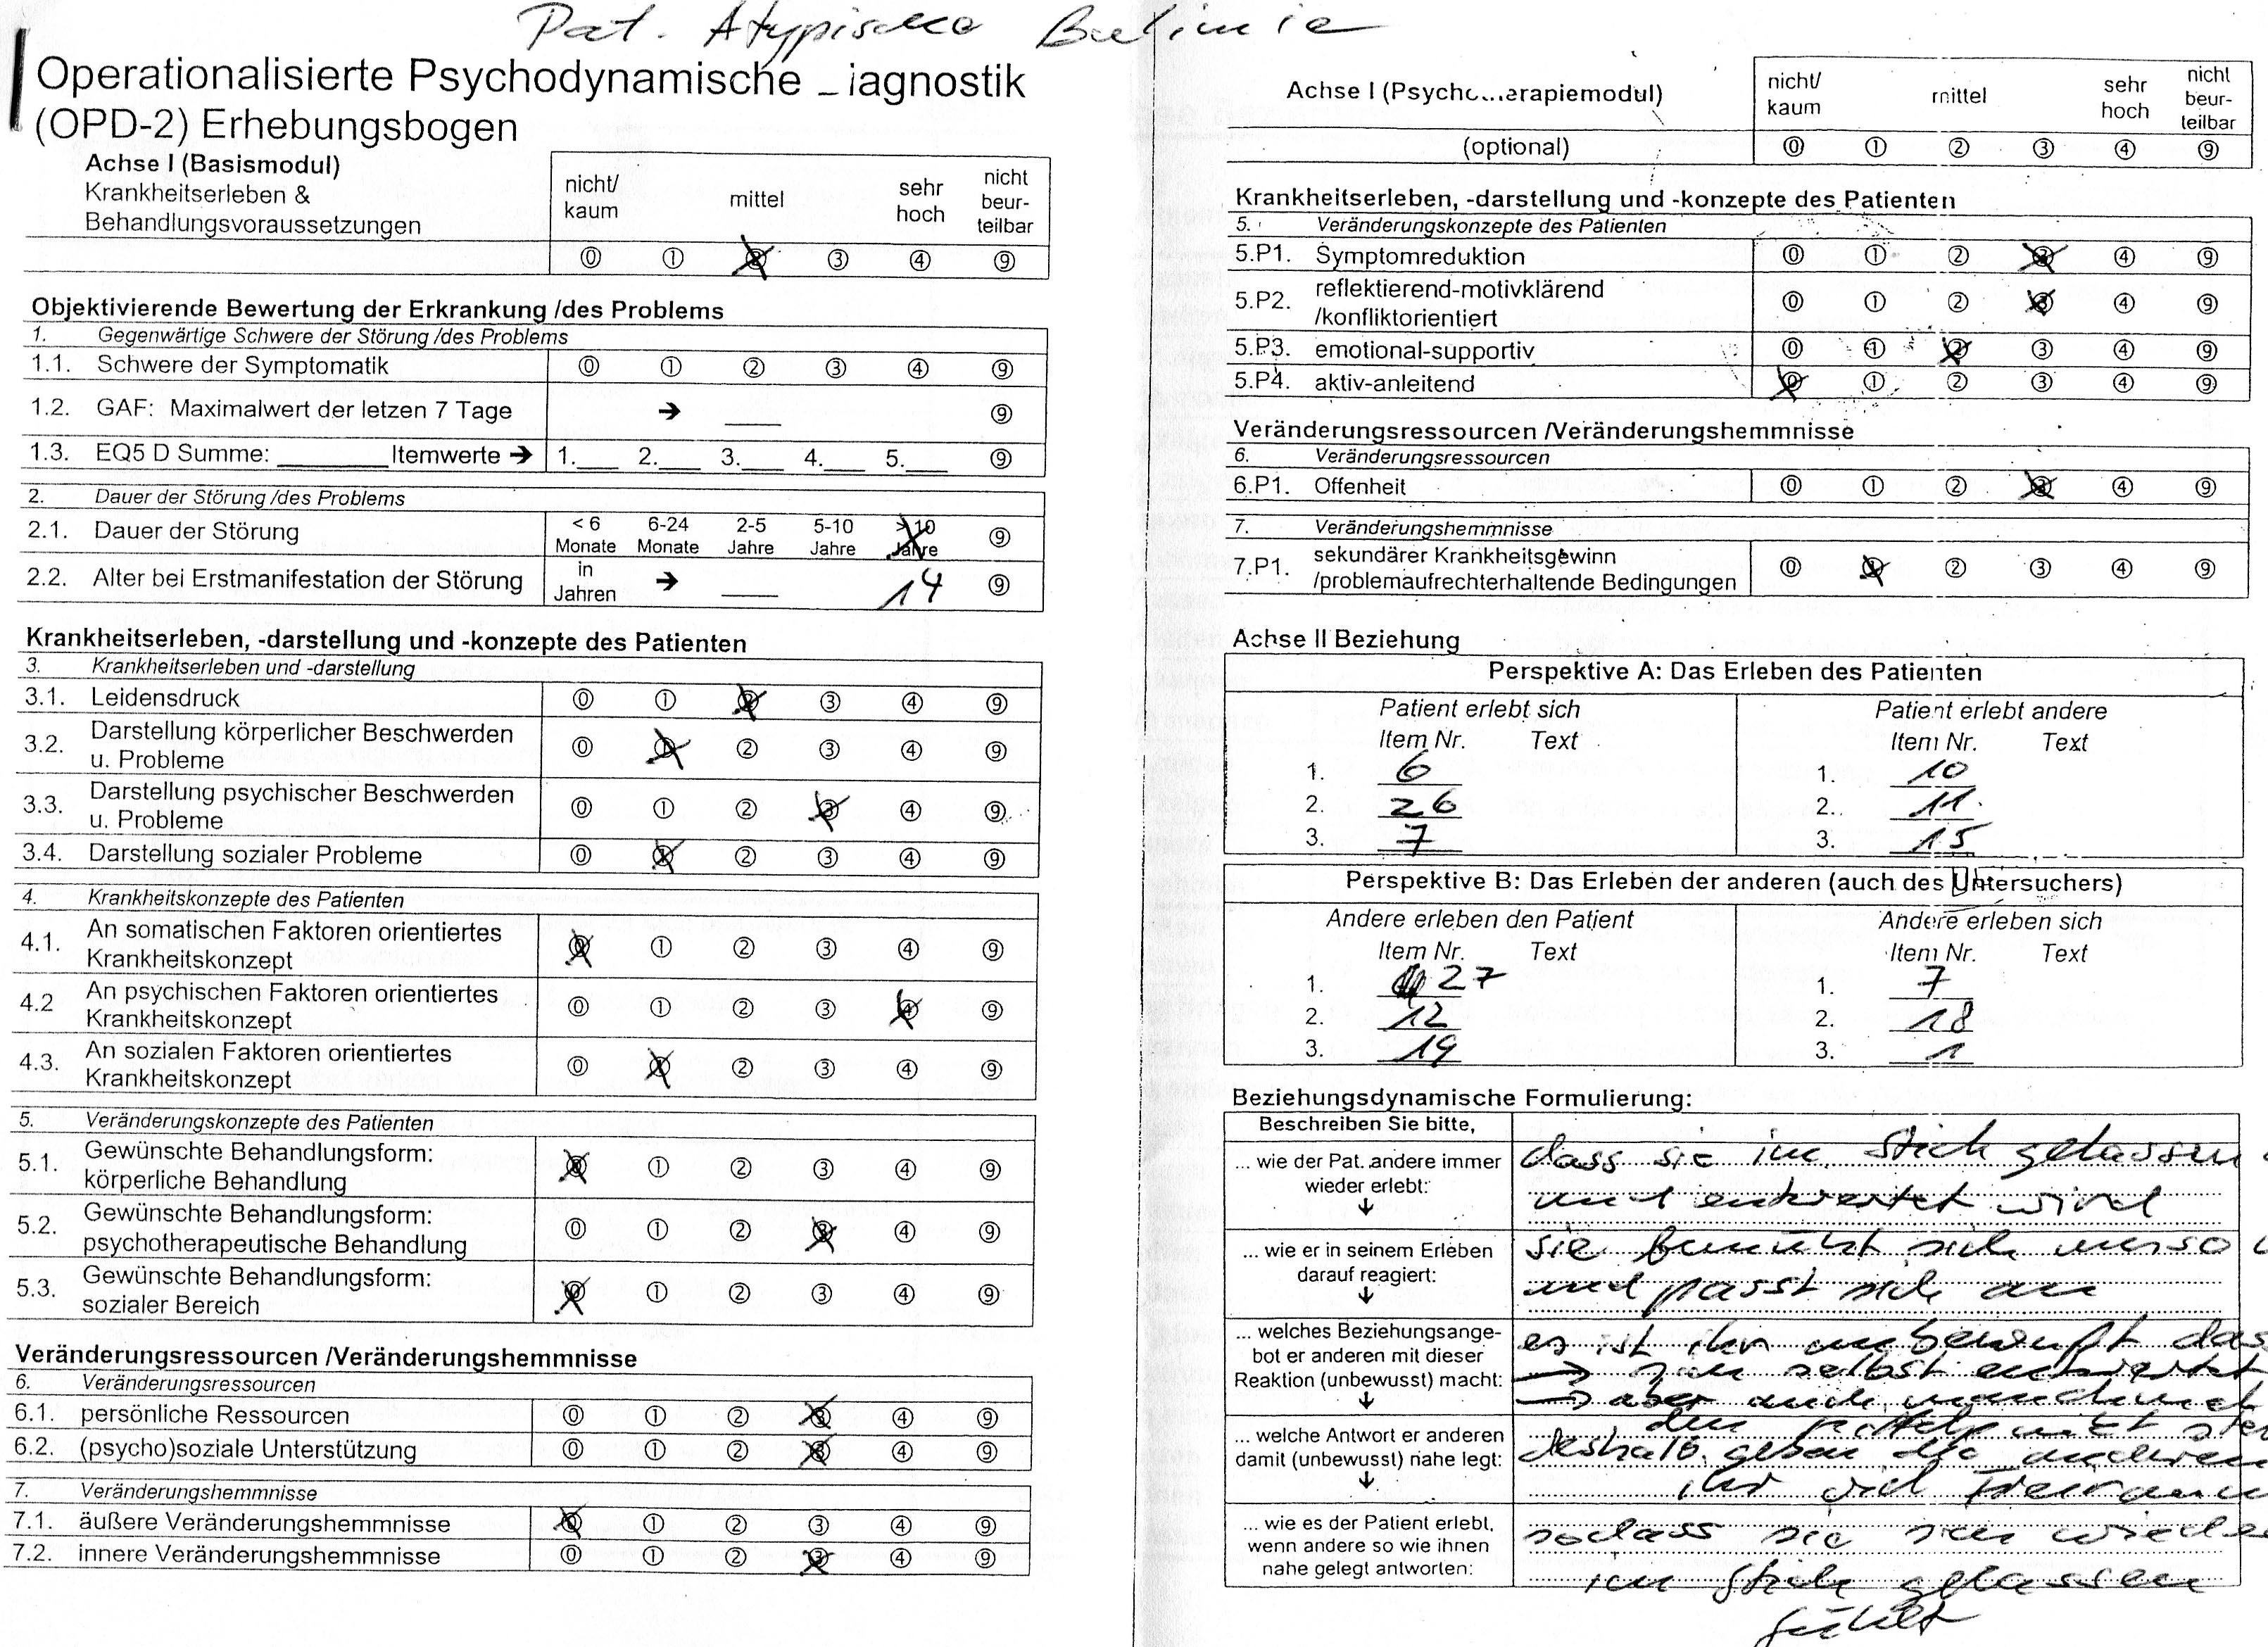 Pat. Atypische Bulimie
Operationalisierte Psychodynamische _iagnostik
(OPD-2) Erhebungsbogen
Achse I (Basismodul)
Krankheitserleben &
Behandlungsvoraussetzungen
nicht/ kaum mittel sehr hoch nicht beur- teilbar
⓪ ① ② ③ ④ ⑨
Objektivierende Bewertung der Erkrankung /des Problems
1. Gegenwärtige Schwere der Störung /des Problems
1.1. Schwere der Symptomatik ⓪ ① ② ③ ④ ⑨
1.2. GAF: Maximalwert der letzen 7 Tage ➔ ____ ⑨
1.3. EQ5 D Summe: ________ Itemwerte ➔ 1.___ 2.___ 3.___ 4.___ 5.___ ⑨
2. Dauer der Störung /des Problems
2.1. Dauer der Störung < 6 Monate 6-24 Monate 2-5 Jahre 5-10 Jahre > 10 Jahre ⑨
2.2. Alter bei Erstmanifestation der Störung in Jahren ➔ ____ 14 ⑨
Krankheitserleben, -darstellung und -konzepte des Patienten
3. Krankheitserleben und -darstellung
3.1. Leidensdruck ⓪ ① ② ③ ④ ⑨
3.2. Darstellung körperlicher Beschwerden
u. Probleme ⓪ ① ② ③ ④ ⑨
3.3. Darstellung psychischer Beschwerden
u. Probleme ⓪ ① ② ③ ④ ⑨
3.4. Darstellung sozialer Probleme ⓪ ① ② ③ ④ ⑨
4. Krankheitskonzepte des Patienten
4.1. An somatischen Faktoren orientiertes
Krankheitskonzept ⓪ ① ② ③ ④ ⑨
4.2 An psychischen Faktoren orientiertes
Krankheitskonzept ⓪ ① ② ③ ④ ⑨
4.3. An sozialen Faktoren orientiertes
Krankheitskonzept ⓪ ① ② ③ ④ ⑨
5. Veränderungskonzepte des Patienten
5.1. Gewünschte Behandlungsform:
körperliche Behandlung ⓪ ① ② ③ ④ ⑨
5.2. Gewünschte Behandlungsform:
psychotherapeutische Behandlung ⓪ ① ② ③ ④ ⑨
5.3. Gewünschte Behandlungsform:
sozialer Bereich ⓪ ① ② ③ ④ ⑨
Veränderungsressourcen /Veränderungshemmnisse
6. Veränderungsressourcen
6.1. persönliche Ressourcen ⓪ ① ② ③ ④ ⑨
6.2. (psycho)soziale Unterstützung ⓪ ① ② ③ ④ ⑨
7. Veränderungshemmnisse
7.1. äußere Veränderungshemmnisse ⓪ ① ② ③ ④ ⑨
7.2. innere Veränderungshemmnisse ⓪ ① ② ③ ④ ⑨
Achse I (Psychotherapiemodul)
nicht/ kaum mittel sehr hoch nicht beur- teilbar
(optional) ⓪ ① ② ③ ④ ⑨
Krankheitserleben, -darstellung und -konzepte des Patienten
5. Veränderungskonzepte des Patienten
5.P1. Symptomreduktion ⓪ ① ② ③ ④ ⑨
5.P2. reflektierend-motivklärend
/konfliktorientiert ⓪ ① ② ③ ④ ⑨
5.P3. emotional-supportiv ⓪ ① ② ③ ④ ⑨
5.P4. aktiv-anleitend ⓪ ① ② ③ ④ ⑨
Veränderungsressourcen /Veränderungshemmnisse
6. Veränderungsressourcen
6.P1. Offenheit ⓪ ① ② ③ ④ ⑨
7. Veränderungshemmnisse
7.P1. sekundärer Krankheitsgewinn
/problemaufrechterhaltende Bedingungen ⓪ ① ② ③ ④ ⑨
Achse II Beziehung
Perspektive A: Das Erleben des Patienten
Patient erlebt sich Patient erlebt andere
Item Nr. Text Item Nr. Text
1. 6 1. 10
2. 26 2. 11
3. 7 3. 15
Perspektive B: Das Erleben der anderen (auch des Untersuchers)
Andere erleben den Patient Andere erleben sich
Item Nr. Text Item Nr. Text
1. 27 1. 7
2. 12 2. 18
3. 19 3. 1
Beziehungsdynamische Formulierung:
Beschreiben Sie bitte,
... wie der Pat. andere immer
wieder erlebt:
↓
dass sie im Stich gelassen
und entwertet wird
... wie er in seinem Erleben
darauf reagiert:
↓
sie bemüht sich umso
und passt sich an
... welches Beziehungsange-
bot er anderen mit dieser
Reaktion (unbewusst) macht:
↓
es ist ihr unbewußt das
→ selbst entwertet
→ aber auch manchmal
den Mittelpunkt
... welche Antwort er anderen
damit (unbewusst) nahe legt:
↓
deshalb geben die anderen
ihr viel Freiraum
... wie es der Patient erlebt,
wenn andere so wie ihnen
nahe gelegt antworten:
sodass sie sich wieder
im Stich gelassen
fühlt